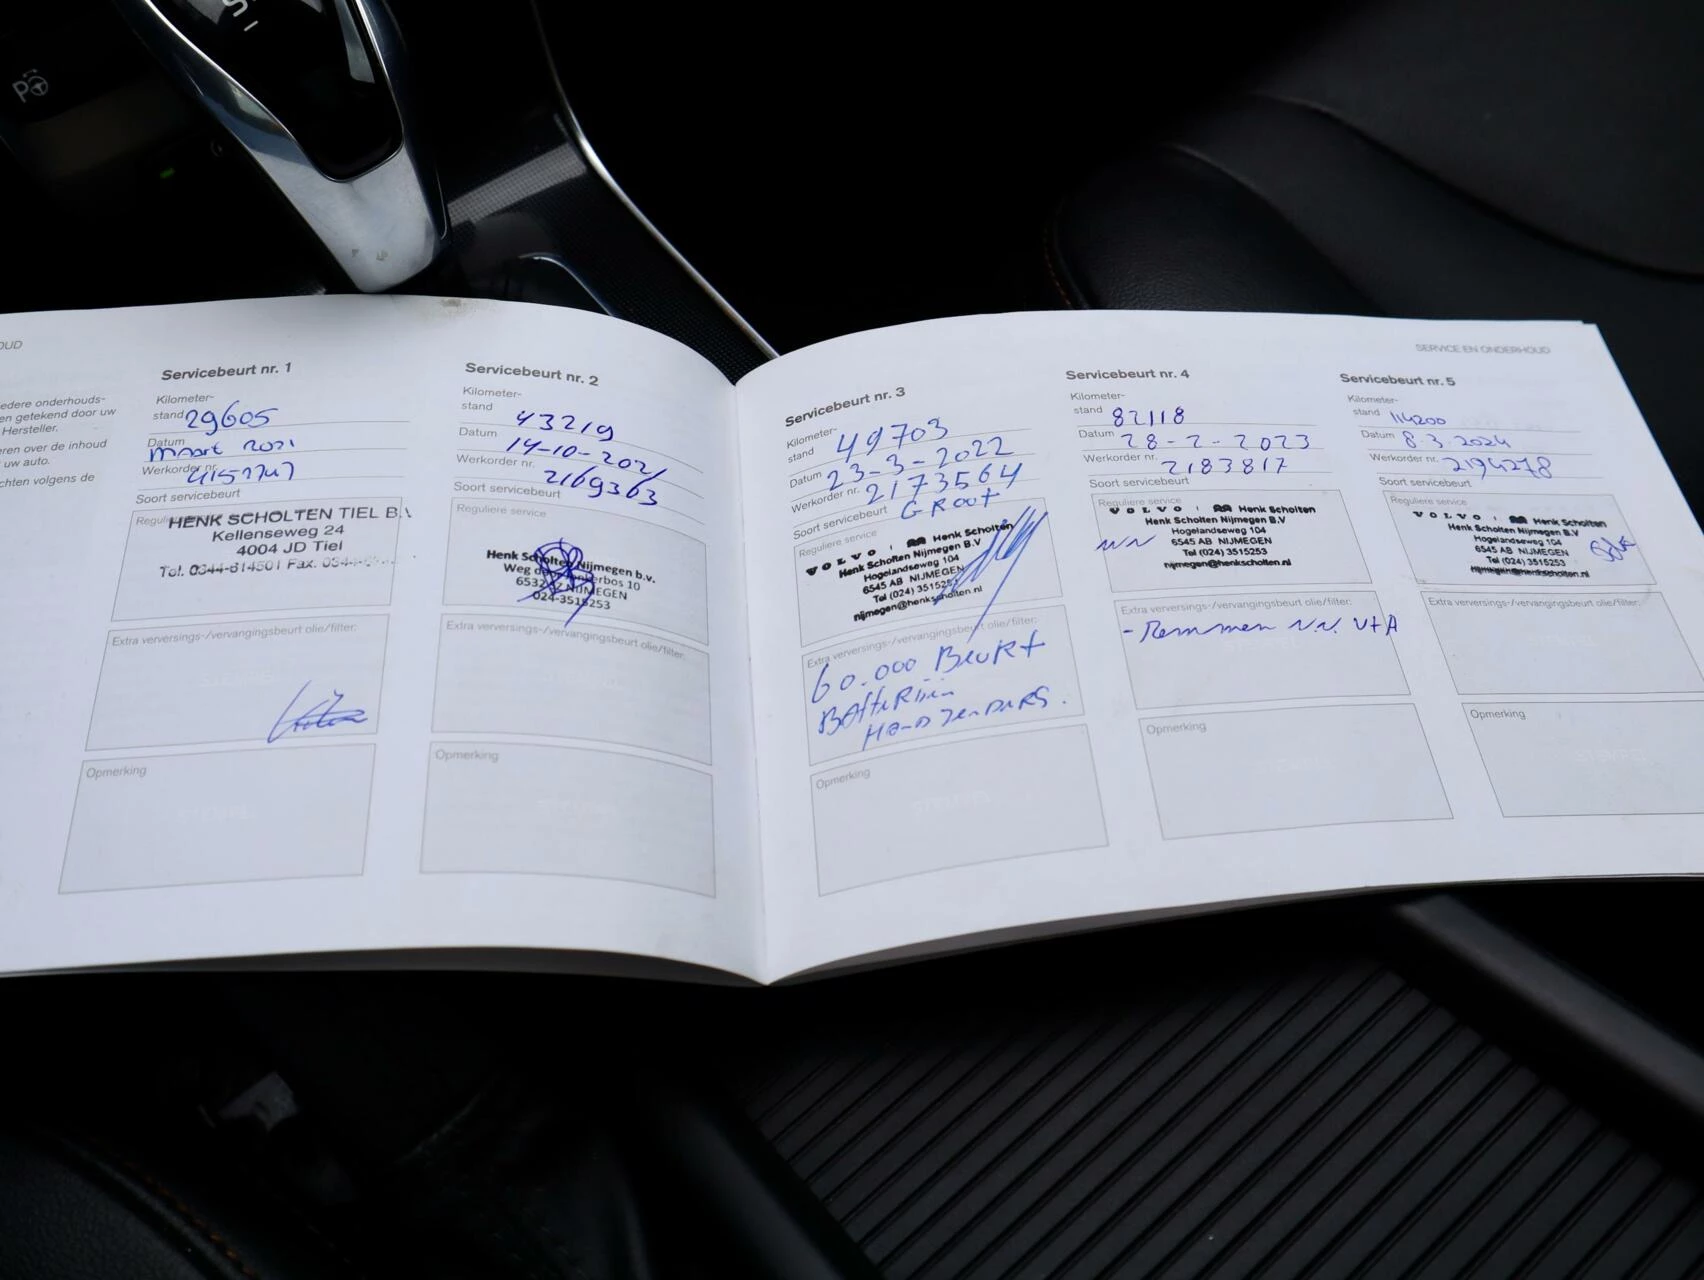 OUD
edere onderhouds-
en getekend door uw
Hersteller.
eren over de inhoud
uw auto.
chten volgens de
Servicebeurt nr. 1
Kilometer-
stand 29605
Datum maart 2021
Werkorder nr.
Soort servicebeurt
Reguliere service
HENK SCHOLTEN TIEL B.V
Kellenseweg 24
4004 JD Tiel
Tel. 0344-614501 Fax. 0344-
Extra verversings-/vervangingsbeurt olie/filter:
Opmerking
Servicebeurt nr. 2
Kilometer-
stand 43219
Datum 14-10-2021
Werkorder nr. 2169363
Soort servicebeurt
Reguliere service
Henk Scholten Nijmegen b.v.
Weg door Jonkerbos 10
6532 NIJMEGEN
024-3515253
Extra verversings-/vervangingsbeurt olie/filter:
Opmerking
Servicebeurt nr. 3
Kilometer-
stand 49703
Datum 23-3-2022
Werkorder nr. 2173564
Soort servicebeurt GROOT
Reguliere service
VOLVO Henk Scholten
Henk Scholten Nijmegen B.V
Hogelandseweg 104
6545 AB NIJMEGEN
Tel (024) 3515253
nijmegen@henkscholten.nl
Extra verversings-/vervangingsbeurt olie/filter:
60.000 BEURT
BATTERIJEN
HANDZENDERS.
Opmerking
Servicebeurt nr. 4
Kilometer-
stand 82118
Datum 28-2-2023
Werkorder nr. 2183817
Soort servicebeurt
Reguliere service
VOLVO Henk Scholten
Henk Scholten Nijmegen B.V
Hogelandseweg 104
6545 AB NIJMEGEN
Tel (024) 3515253
nijmegen@henkscholten.nl
Extra verversings-/vervangingsbeurt olie/filter:
- Remmen N.N. V+A
Opmerking
SERVICE EN ONDERHOUD
Servicebeurt nr. 5
Kilometer-
stand 114200
Datum 8.3.2024
Werkorder nr. 2194278
Soort servicebeurt
Reguliere service
VOLVO Henk Scholten
Henk Scholten Nijmegen B.V
Hogelandseweg 104
6545 AB NIJMEGEN
Tel (024) 3515253
nijmegen@henkscholten.nl
Extra verversings-/vervangingsbeurt olie/filter:
Opmerking